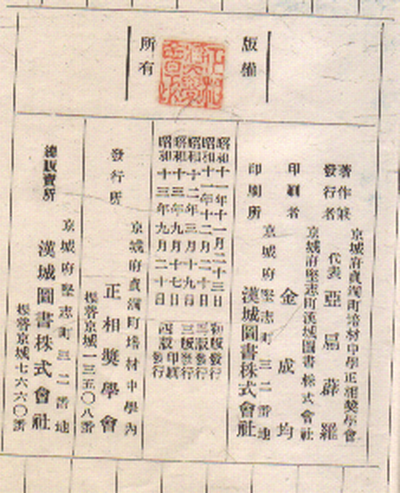 版權
所有
京城府貞洞町培材中學正相獎學會
著作兼
發行者
代表 亞扁薛羅
京城府堅志町漢城圖書株式會社
印刷者 金成均
京城府堅志町三二番地
印刷所 漢城圖書株式會社
昭和十一年十一月二十三日 初版發行
昭和十一年十二月二十日 再版發行
昭和十二年三月二十日 三版發行
昭和十三年九月十七日 四版印刷
昭和十三年九月二十日 四版發行
京城府貞洞町培材中學內
發行所 正相獎學會
振替京城一三五〇八番
京城府堅志町三二番地
總販賣所 漢城圖書株式會社
振替京城七六六〇番